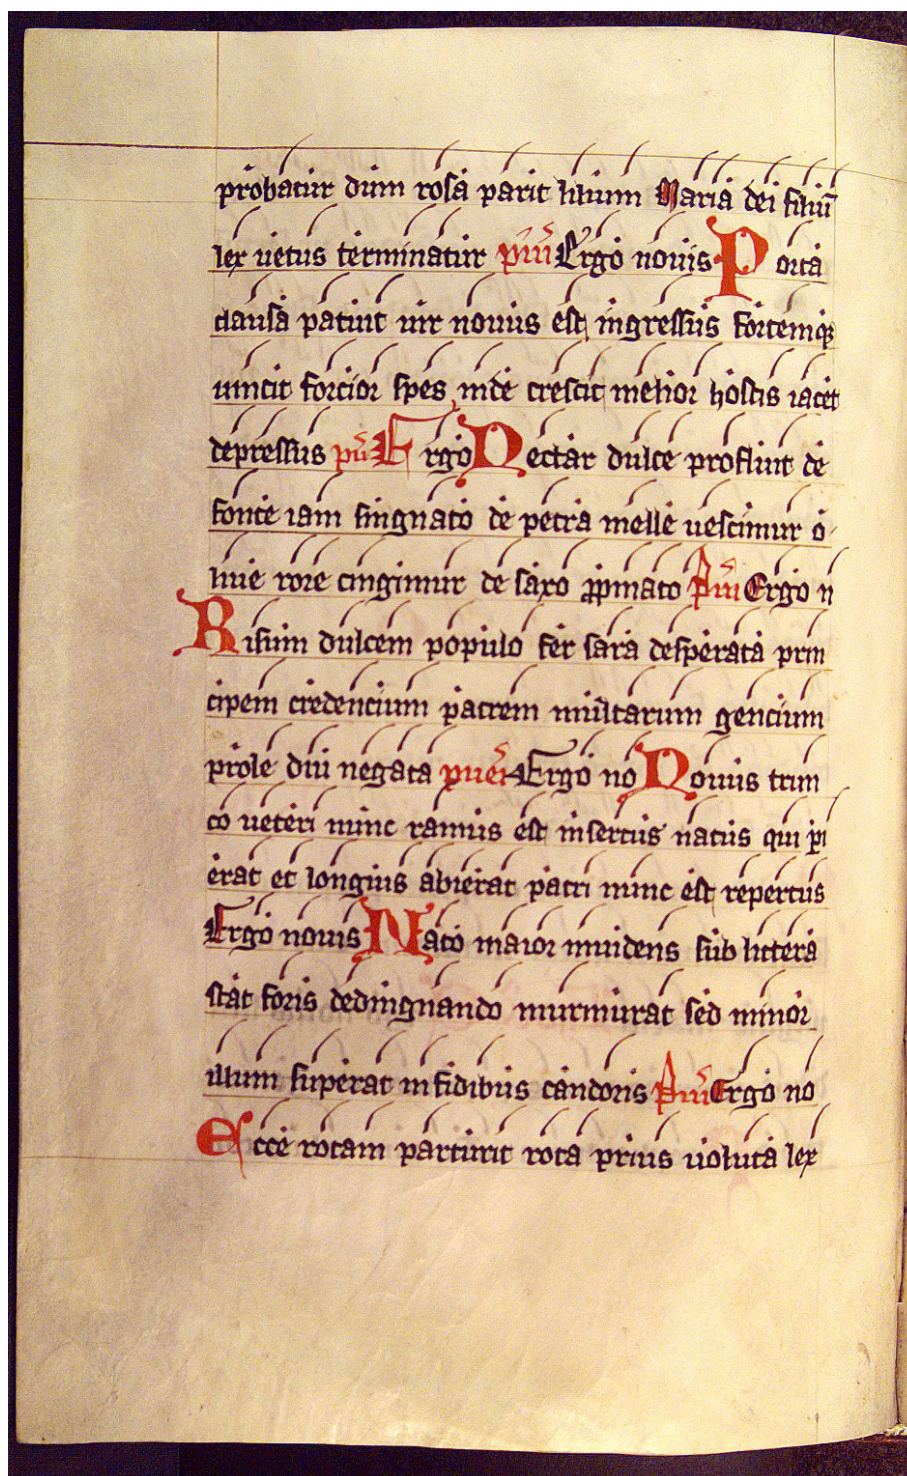 probatur dum rosa parit lilium Maria dei filiū
lex uetus terminatur pūi Ergo nouis Porta
clausa patuit uir nouus est ingressus fortemq̄
uincit forcior spes inde crescit melior hostis iacet
depressus pūi Ergo Nectar dulce profluit de
fonte iam singnato de petra melle uescimur o
liue rore cingimur de saxo ꝓpinato pūi Ergo n
Risum dulcem populo fer sara desperata prin
cipem credencium patrem multarum gencium
prole diu negata pueri Ergo no Nouus trun
co ueteri nunc ramus est insertus natus qui pi
erat et longius abierat patri nunc est repertus
Ergo nouis Nato maior inuidens sub littera
stat foris dedingnando murmurat sed minor
illum superat in fidibus candoris pūi Ergo no
Ecce rotam parturit rota prius uoluta lex